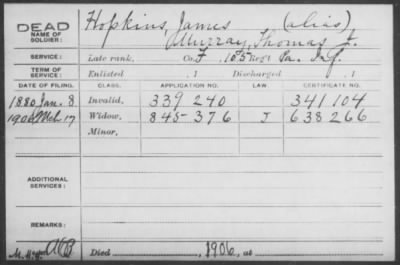 DEAD
NAME OF SOLDIER:
Hopkins, James (alias)
Murray, Thomas J.
SERVICE:
Late rank, Co. F, 105 Reg't Pa. Inf.
TERM OF SERVICE:
Enlisted , 1 Discharged , 1
DATE OF FILING. CLASS. APPLICATION NO. LAW. CERTIFICATE NO.
1880 Jan. 8 Invalid, 339 240 341 104
1906 Mch 17 Widow, 845 376 J 638 266
Minor,
ADDITIONAL SERVICES:
REMARKS:
Died , 1906, at